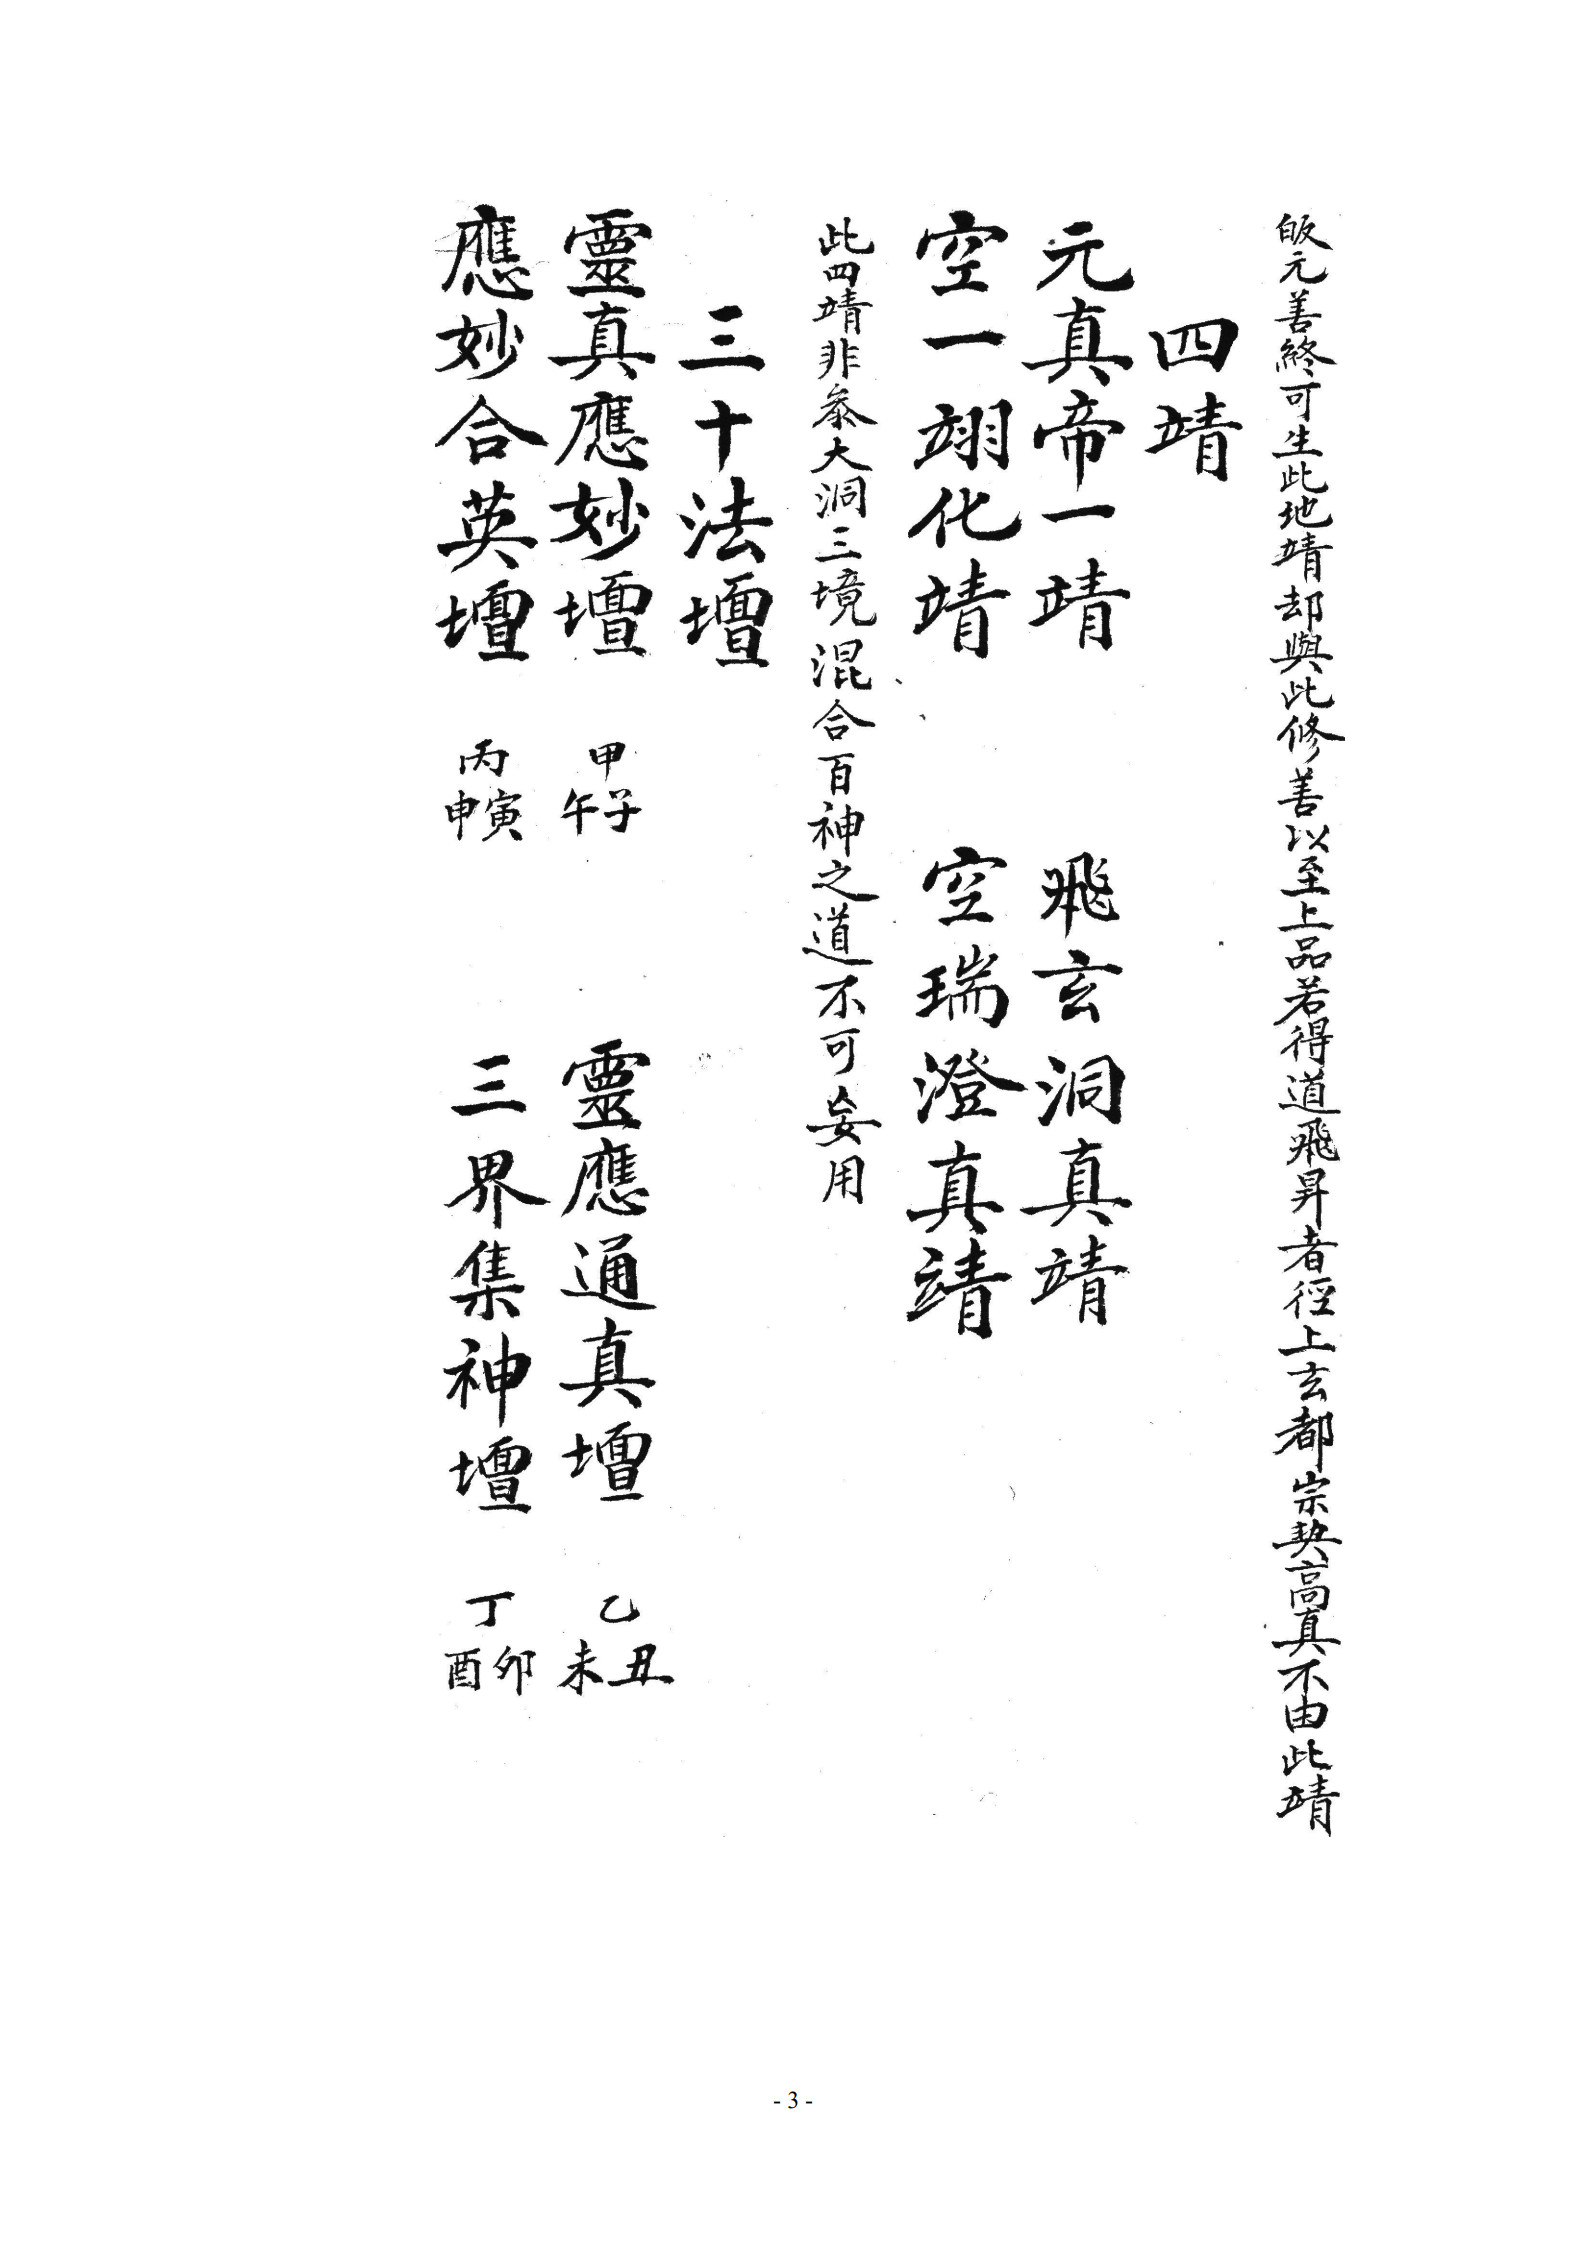 皈元善終可生此地靖却與此修善以至上品若得道飛昇者徑上玄都宗契高真不由此靖
四靖
元真帝一靖 飛玄洞真靖
空一翊化靖 空瑞澄真靖
此四靖非叅大洞三境混合百神之道不可妄用
三十法壇
靈真應妙壇 甲子午 靈應通真壇 乙丑未
應妙合英壇 丙寅申 三界集神壇 丁卯酉
- 3 -